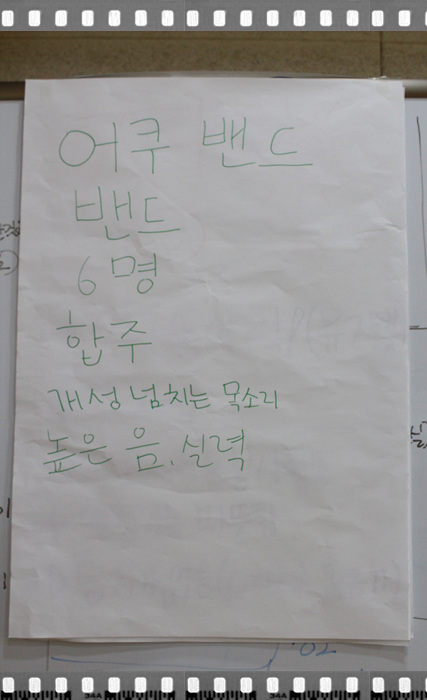 어쿠 밴드
밴드
6명
합주
개성 넘치는 목소리
높은 음, 실력